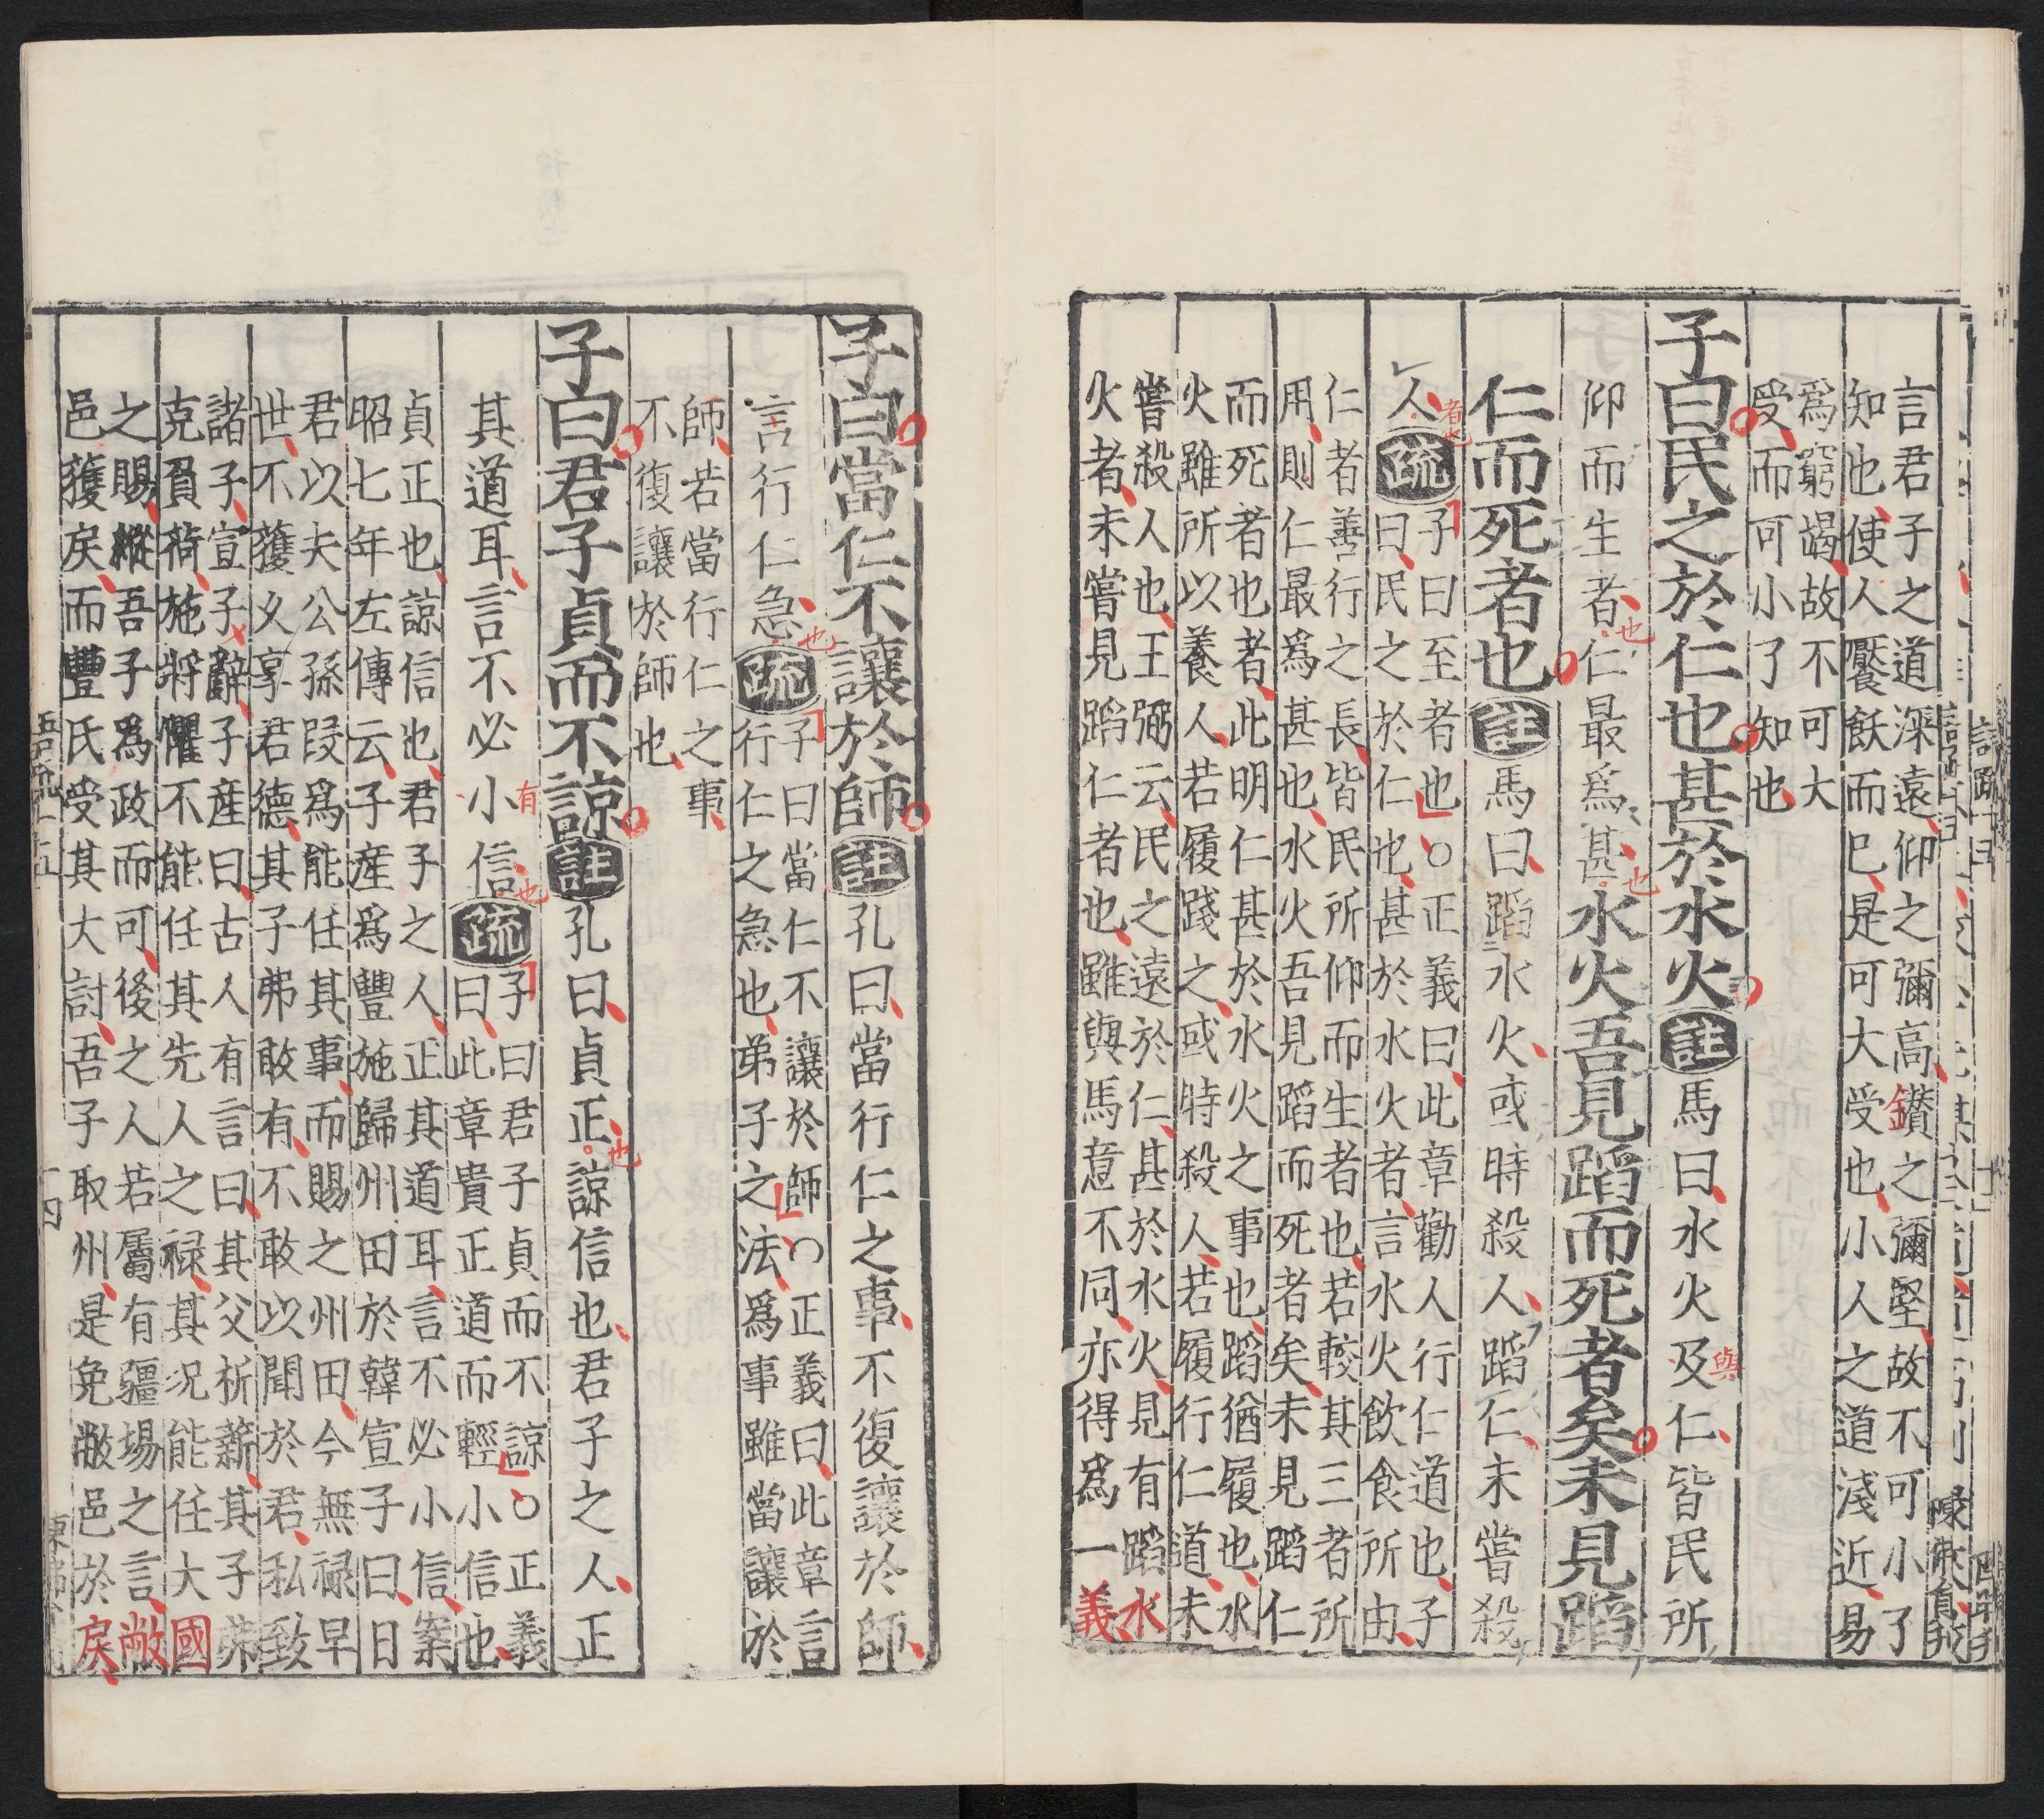 言君子之道深遠仰之彌高鑚之彌堅故不可小了
知也使人饜飫而已是可大受也小人之道淺近易
爲窮竭故不可大
受而可小了知也
子曰民之於仁也甚於水火註馬曰水火及與仁皆民所
仰而生者也仁最爲甚也水火吾見蹈而死者矣未見蹈
仁而死者也註馬曰蹈水火或時殺人蹈仁未嘗殺
人者也疏
子曰至者也○正義曰此章勸人行仁道也子
曰民之於仁也甚於水火者言水火飲食所由
仁者善行之長皆民所仰而生者也若較其三者所
用則仁最爲甚也水火吾見蹈而死者矣未見蹈仁
而死者也者此明仁甚於水火之事也蹈猶履也水
火雖所以養人若履踐之或時殺人若履行仁道未
嘗殺人也王弼云民之遠於仁甚於水火見有蹈水
火者未嘗見蹈仁者也雖與馬意不同亦得爲一義
子曰當仁不讓於師註孔曰當行仁之事不復讓於師
言行仁急也疏
子曰當仁不讓於師○正義曰此章言
行仁之急也弟子之法爲事雖當讓於
師若當行仁之事
不復讓於師也
子曰君子貞而不諒註孔曰貞正也諒信也君子之人正
其道耳言不必小有信也疏
子曰君子貞而不諒○正義
曰此章貴正道而輕小信也
貞正也諒信也君子之人正其道耳言不必小信案
昭七年左傳云子産爲豐施歸州田於韓宣子曰日
君以夫公孫段爲能任其事而賜之州田今無祿早
世不獲久享君德其子弗敢有不敢以聞於君私致
諸子宣子辭子産曰古人有言曰其父析薪其子弗
克負荷施將懼不能任其先人之祿其況能任大國
之賜縱吾子爲政而可後之人若屬有疆埸之言敝
邑獲戾而豐氏受其大討吾子取州是免敝邑於戾